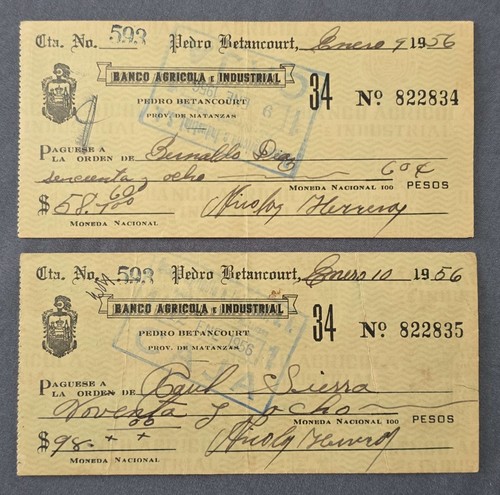 Cta. No. 593 Pedro Betancourt, Enero 9 1956
BANCO AGRICOLA E INDUSTRIAL
PEDRO BETANCOURT
PROV. DE MATANZAS
34 Nº 822834
PAGUESE A
LA ORDEN DE Bernaldo Diaz
cincuenta y ocho 60¢
MONEDA NACIONAL 100 PESOS
$ 58.60/00
MONEDA NACIONAL
Nicolas Herrera
Cta. No. 593 Pedro Betancourt, Enero 10 1956
BANCO AGRICOLA E INDUSTRIAL
PEDRO BETANCOURT
PROV. DE MATANZAS
34 Nº 822835
PAGUESE A
LA ORDEN DE Raul Sierra
Noventa y ocho
MONEDA NACIONAL 100 PESOS
$ 98.00
MONEDA NACIONAL
Nicolas Herrera